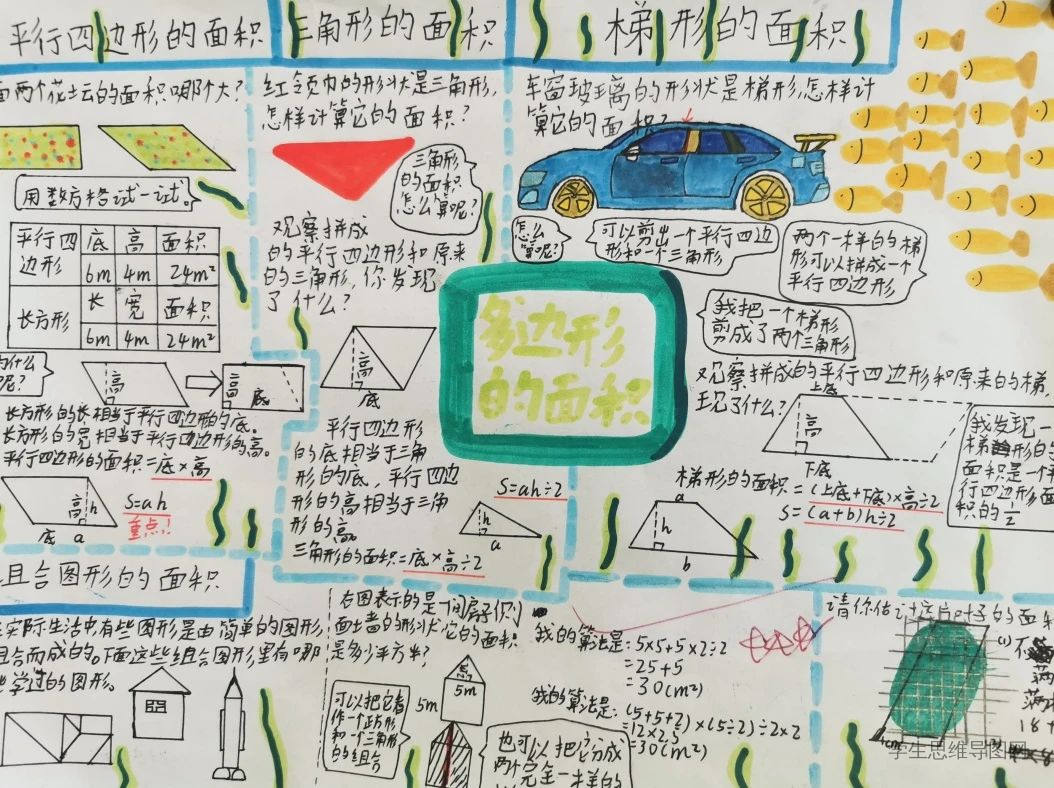 平行四边形的面积
面两个花坛的面积哪个大?
用数方格试一试。
平行四边形 底 高 面积
6m 4m 24m²
长方形 长 宽 面积
6m 4m 24m²
为什么
呢?
高
高
底
长方形的长相当于平行四边形的底。
长方形的宽相当于平行四边形的高。
平行四边形的面积=底×高
高 h
底 a
S=ah
重点!
三角形的面积
红领巾的形状是三角形,
怎样计算它的面积?
三角形
的面积
怎么算呢?
观察拼成
的平行四边形和原来
的三角形,你发现
了什么?
高
底
平行四边形
的底相当于三角
形的底,平行四边
形的高相当于三角
形的高。
三角形的面积=底×高÷2
S=ah÷2
h
a
梯形的面积
车窗玻璃的形状是梯形,怎样计
算它的面积?
怎么
算呢?
可以剪出一个平行四边
形和一个三角形
两个一样的梯
形可以拼成一个
平行四边形
我把一个梯形
剪成了两个三角形
观察拼成的平行四边形和原来的梯,
现了什么?
上底
高
下底
我发现一
梯形的
面积是一个
行四边形面
积的½
梯形的面积=(上底+下底)×高÷2
S=(a+b)h÷2
a
h
b
多边形
的面积
组合图形的面积
实际生活中有些图形是由简单的图形
组合而成的。下面这些组合图形里有哪
些学过的图形。
右图表示的是一间房子侧
面墙的形状,它的面积
是多少平方米?
5m
5m
可以把它看
作一个正方形
和一个三角形
的组合
也可以把它分成
两个完全一样的
我的算法是:5×5+5×2÷2
=25+5
=30(cm²)
我的算法是:(5+5+2)×(5÷2)÷2×2
=12×2.5
=30(cm²)
请你估计这片叶子的面积
(1)不
满
满
18+
1cm
学生思维导图